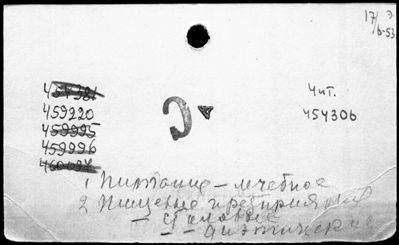 17/7
6-53
459220
459995
459996
Чит.
454306
1 Питание - лечебное
2 Пищевые предприятия
- столовые
- - диэтические